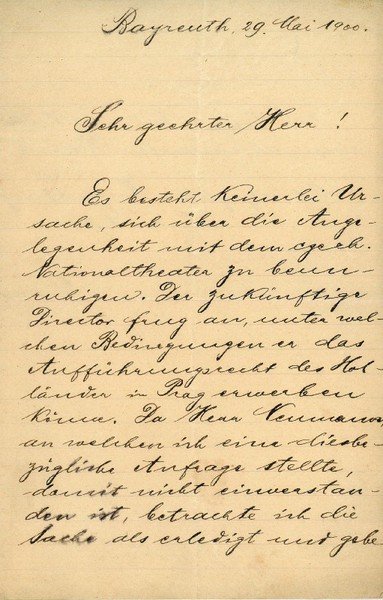 Bayreuth, 29. Mai 1900.
Sehr geehrter Herr!
Es besteht keinerlei Ur-
sache, sich über die Ange-
legenheit mit dem czech.
Nationaltheater zu beun-
ruhigen. Der zukünftige
Director frug an, unter wel-
chen Bedingungen er das
Aufführungsrecht des Hol-
länder in Prag erwerben
könne. Da Herr Neumann,
an welchen ich eine diesbe-
zügliche Anfrage stellte,
damit nicht einverstan-
den ist, betrachte ich die
Sache als erledigt und gebe